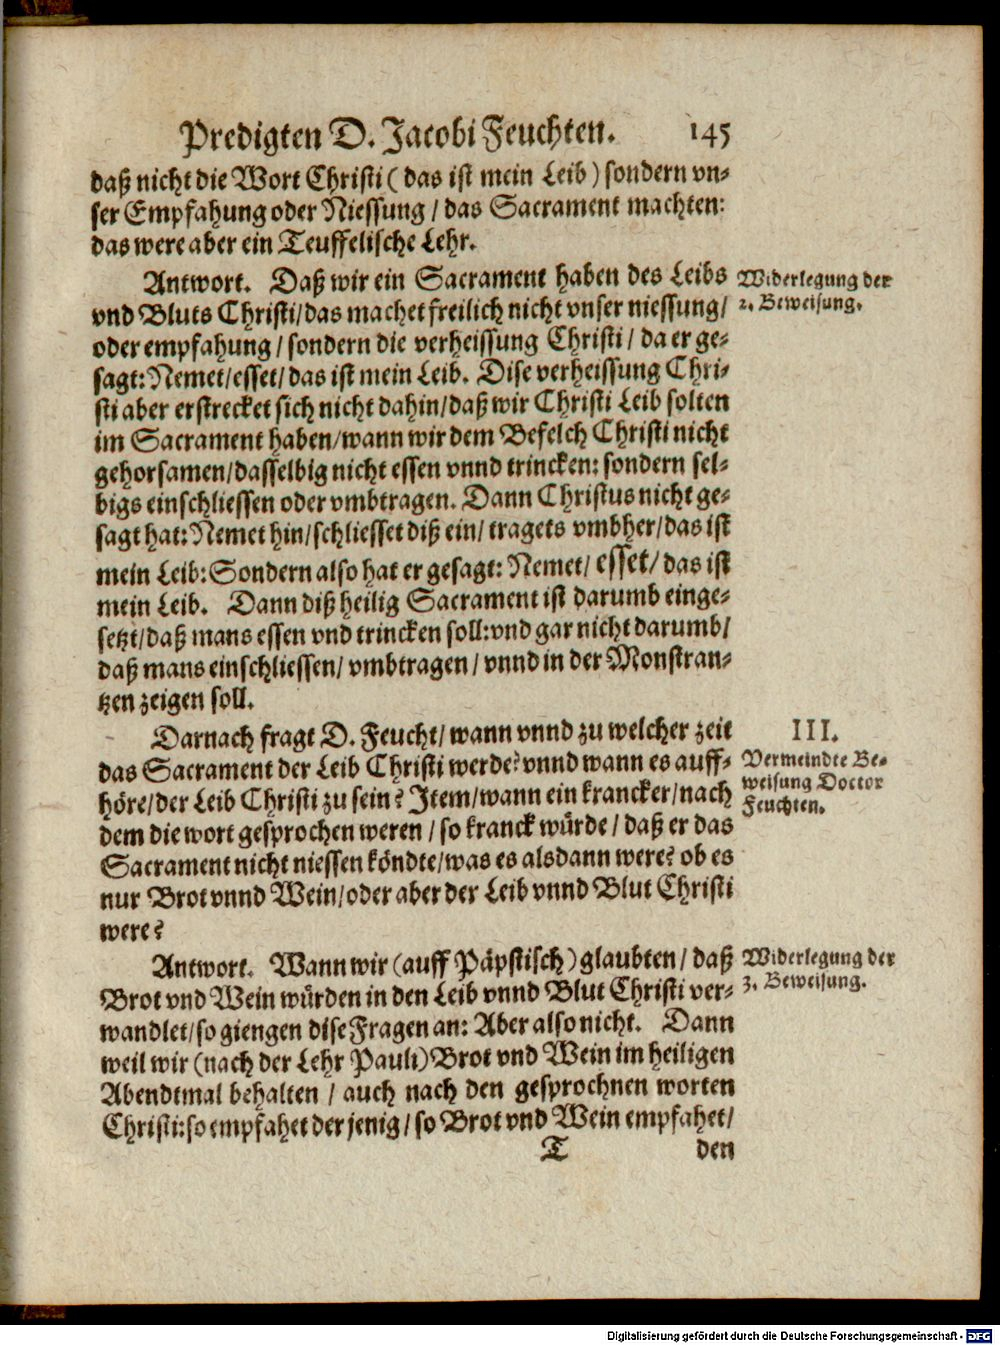 Predigten D. Jacobi Feuchten. 145
daß nicht die Wort Christi ( das ist mein Leib ) sondern vn-
ser Empfahung oder Niessung / das Sacrament machten:
das were aber ein Teuffelische Lehr.
Antwort. Daß wir ein Sacrament haben des Leibs
vnd Bluts Christi/ das machet freilich nicht vnser niessung/
oder empfahung / sondern die verheissung Christi / da er ge-
sagt: Nemet/ esset/ das ist mein Leib. Dise verheissung Chri-
sti aber erstrecket sich nicht dahin/ daß wir Christi Leib solten
im Sacrament haben/ wann wir dem Befelch Christi nicht
gehorsamen/ dasselbig nicht essen vnnd trincken: sondern sel-
bigs einschliessen oder vmbtragen. Dann Christus nicht ge-
sagt hat: Nemet hin/ schliesset diß ein/ tragets vmbher/ das ist
mein Leib: Sondern also hat er gesagt: Nemet/ esset/ das ist
mein Leib. Dann diß heilig Sacrament ist darumb einge-
setzt/ daß mans essen vnd trincken soll: vnd gar nicht darumb/
daß mans einschliessen/ vmbtragen/ vnnd in der Monstran-
tzen zeigen soll.
Widerlegung der
2. Beweisung.
Darnach fragt D. Feucht/ wann vnnd zu welcher zeit
das Sacrament der Leib Christi werde? vnnd wann es auff-
höre/ der Leib Christi zu sein? Item/ wann ein krancker/ nach
dem die wort gesprochen weren / so kranck würde / daß er das
Sacrament nicht niessen köndte/ was es alsdann were? ob es
nur Brot vnnd Wein/ oder aber der Leib vnnd Blut Christi
were?
III.
Vermeindte Be-
weisung Doctor
Feuchten.
Antwort. Wann wir (auff Päpstisch) glaubten/ daß
Brot vnd Wein würden in den Leib vnnd Blut Christi ver-
wandlet/ so giengen dise Fragen an: Aber also nicht. Dann
weil wir (nach der Lehr Pauli) Brot vnd Wein im heiligen
Abendtmal behalten / auch nach den gesprochnen worten
Christi: so empfahet der jenig/ so Brot vnd Wein empfahet/
Widerlegung der
3. Beweisung.
T den
Digitalisierung gefördert durch die Deutsche Forschungsgemeinschaft - DFG